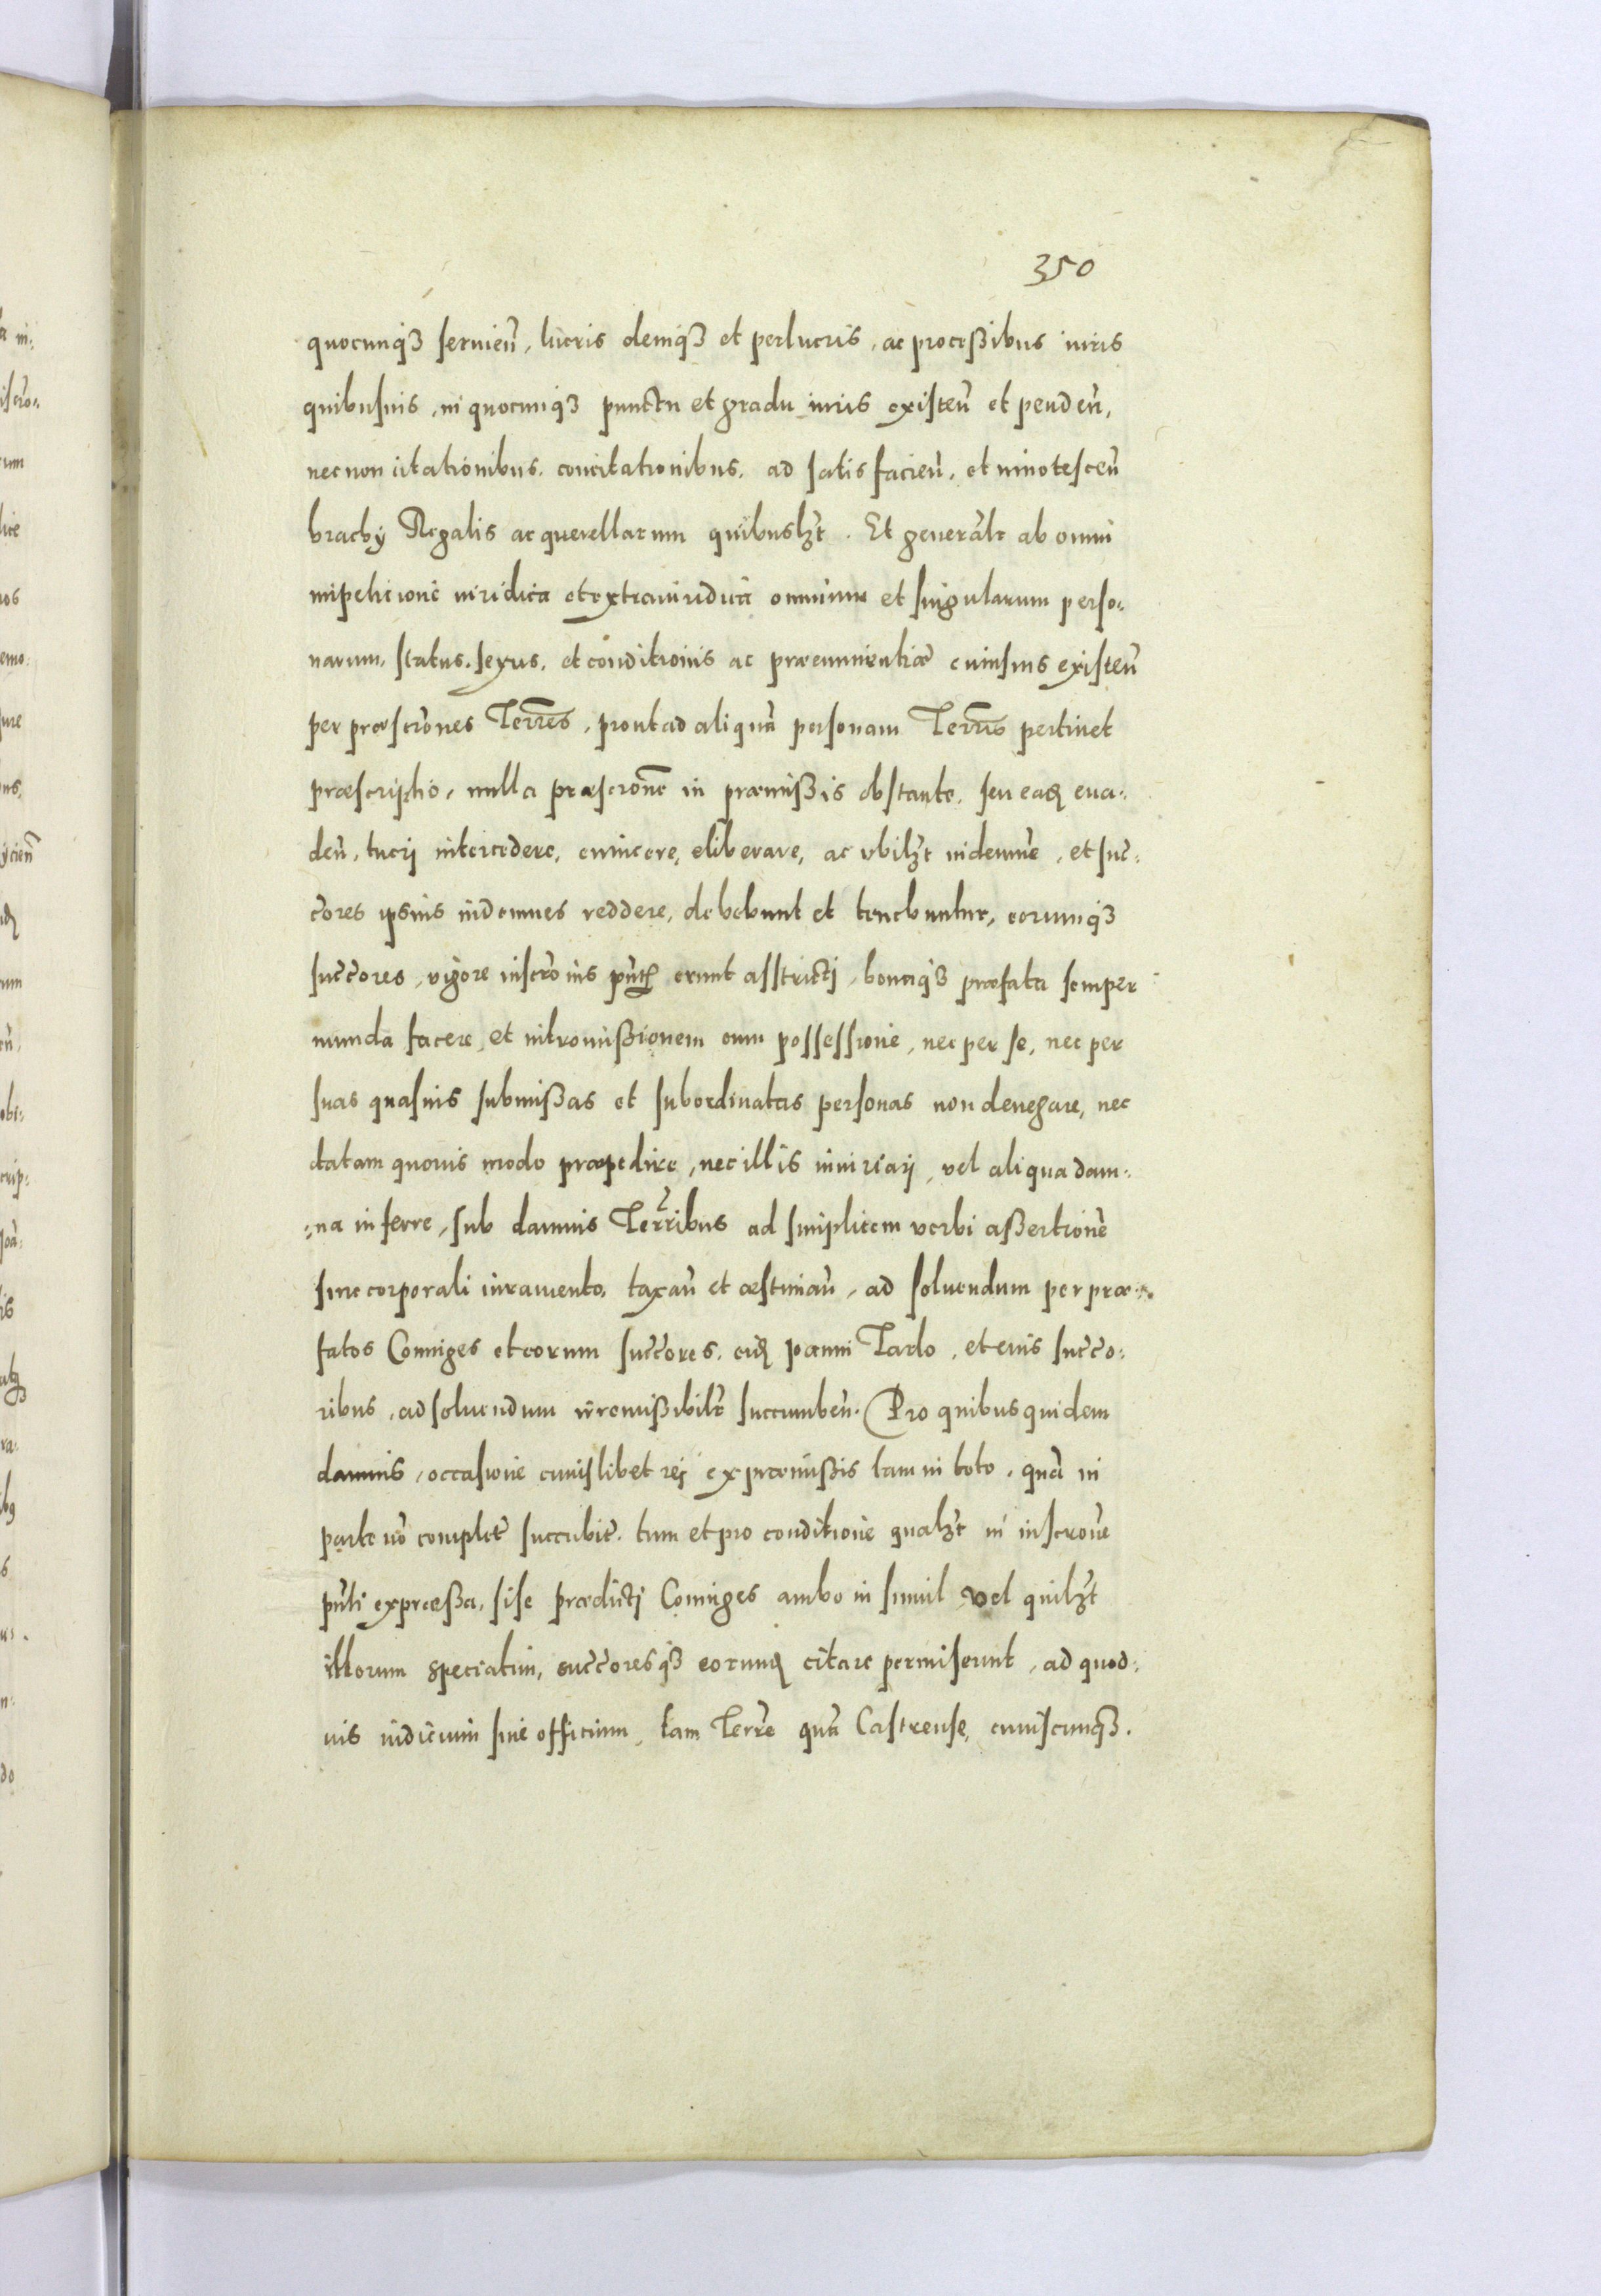 350
quocunqȝ seruieñ, lucris deniqȝ et perlucris, ac proceßibus iuris
quibusuis, in quocunqȝ punctu et gradu iuris existeñ et pendeñ,
necnon citationibus, concitationibus, ad satisfacieñ, et innotesceñ
brachÿ Regalis ac querellarum quibuslȝt. Et generalr̃ ab omni
impeticione iuridica et extraiuridica omnium et singularum perso:
narum, status, sexus, et conditionis ac præeminentiæ cuiusuis existeñ
per præscr̃ones Terr̃res, prout ad aliquã personam Terr̃ris pertinet
præscriptio, nulla præscr̃one in præmißis obstante, seu eaȝ eua:
deñ, tueri intercedere, euincere, eliberare, ac vbilȝt indemnẽ, et suc:
c̃ores ipsius indemnes reddere, debebunt et tenebuntur, eorumqȝ
succ̃ores, vigore inscr̃onis pñtȝ erunt asstricti, bonaqȝ præfata semper
munda facere, et intromißionem cum possessione, nec per se, nec per
suas quasuis submißas et subordinatas personas non denegare, nec
datam quouis modo præpedire, nec illis iniuriari, vel aliqua dam:
:na inferre, sub damnis Terr̃ribus ad simplicem verbi aßertionẽ
sine corporali iuramento, taxañ et æstimañ, ad soluendum per præ:
fatos Coniuges et eorum succ̃ores, eiȝ Joanni Tarlo, et eius succ̃o:
ribus, ad soluendum irremißibilr̃ succumbeñ. Pro quibus quidem
damnis, occasione cuiuslibet rei ex præmißis tam in toto, quã in
parte nõ completẽ succubitẽ, tum et pro conditione qualȝt in inscr̃one
pñti expræßa, sise prædicti Coniuges ambo in simul vel quilȝt
illorum speciatim, succ̃oresqȝ eorunȝ citare permiserunt, ad quod:
uis iudicium siue officium, tam Terr̃re quã Castrense, cuiuscunqȝ.